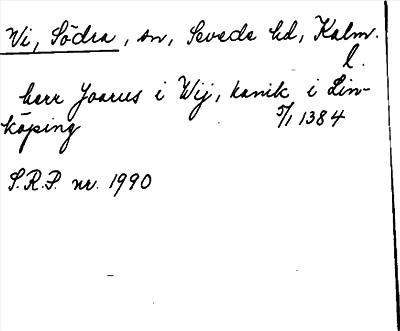 Vi, Södra, sn, Sevede hd, Kalm.
l.
herr Joarus i Wij, kanik i Lin-
köping 5/1 1384
S.R.P. nr. 1990